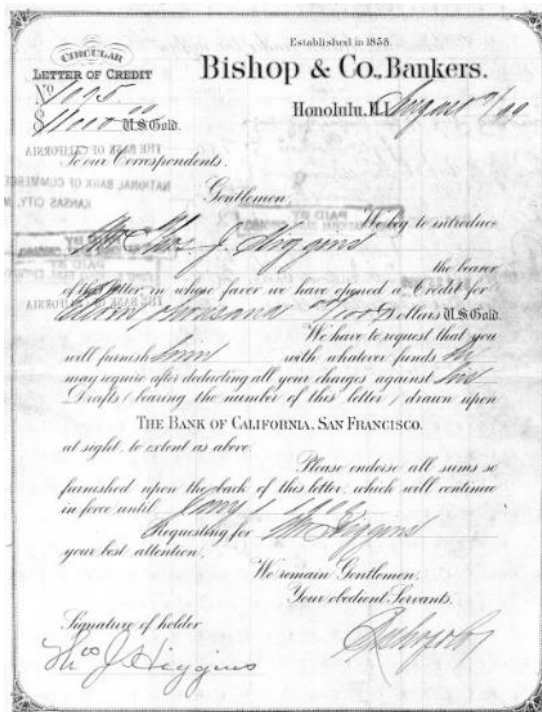 CIRCULAR
LETTER OF CREDIT
No 1095.
$11000 00 U.S Gold.
Established in 1858.
Bishop & Co., Bankers.
Honolulu, H.I. August
To our Correspondents.
THE BANK OF CALIFORNIA
NATIONAL BANK OF COMMERCE
KANSAS CITY,
Gentlemen,
We beg to introduce
PAID BY
Mr Thos. J. Higgins
the bearer
of this letter, in whose favor we have opened a Credit for
Eleven thousand Dollars U.S. Gold.
We have to request that you
will furnish him with whatever funds he
may require after deducting all your charges against his
Drafts (bearing the number of this letter) drawn upon
THE BANK OF CALIFORNIA, SAN FRANCISCO.
at sight, to extent as above.
Please endorse all sums so
furnished upon the back of this letter, which will continue
in force until Jany 1
Requesting for Mr Higgins
your best attention,
We remain Gentlemen,
Your obedient Servants.
Signature of holder
Thos J Higgins